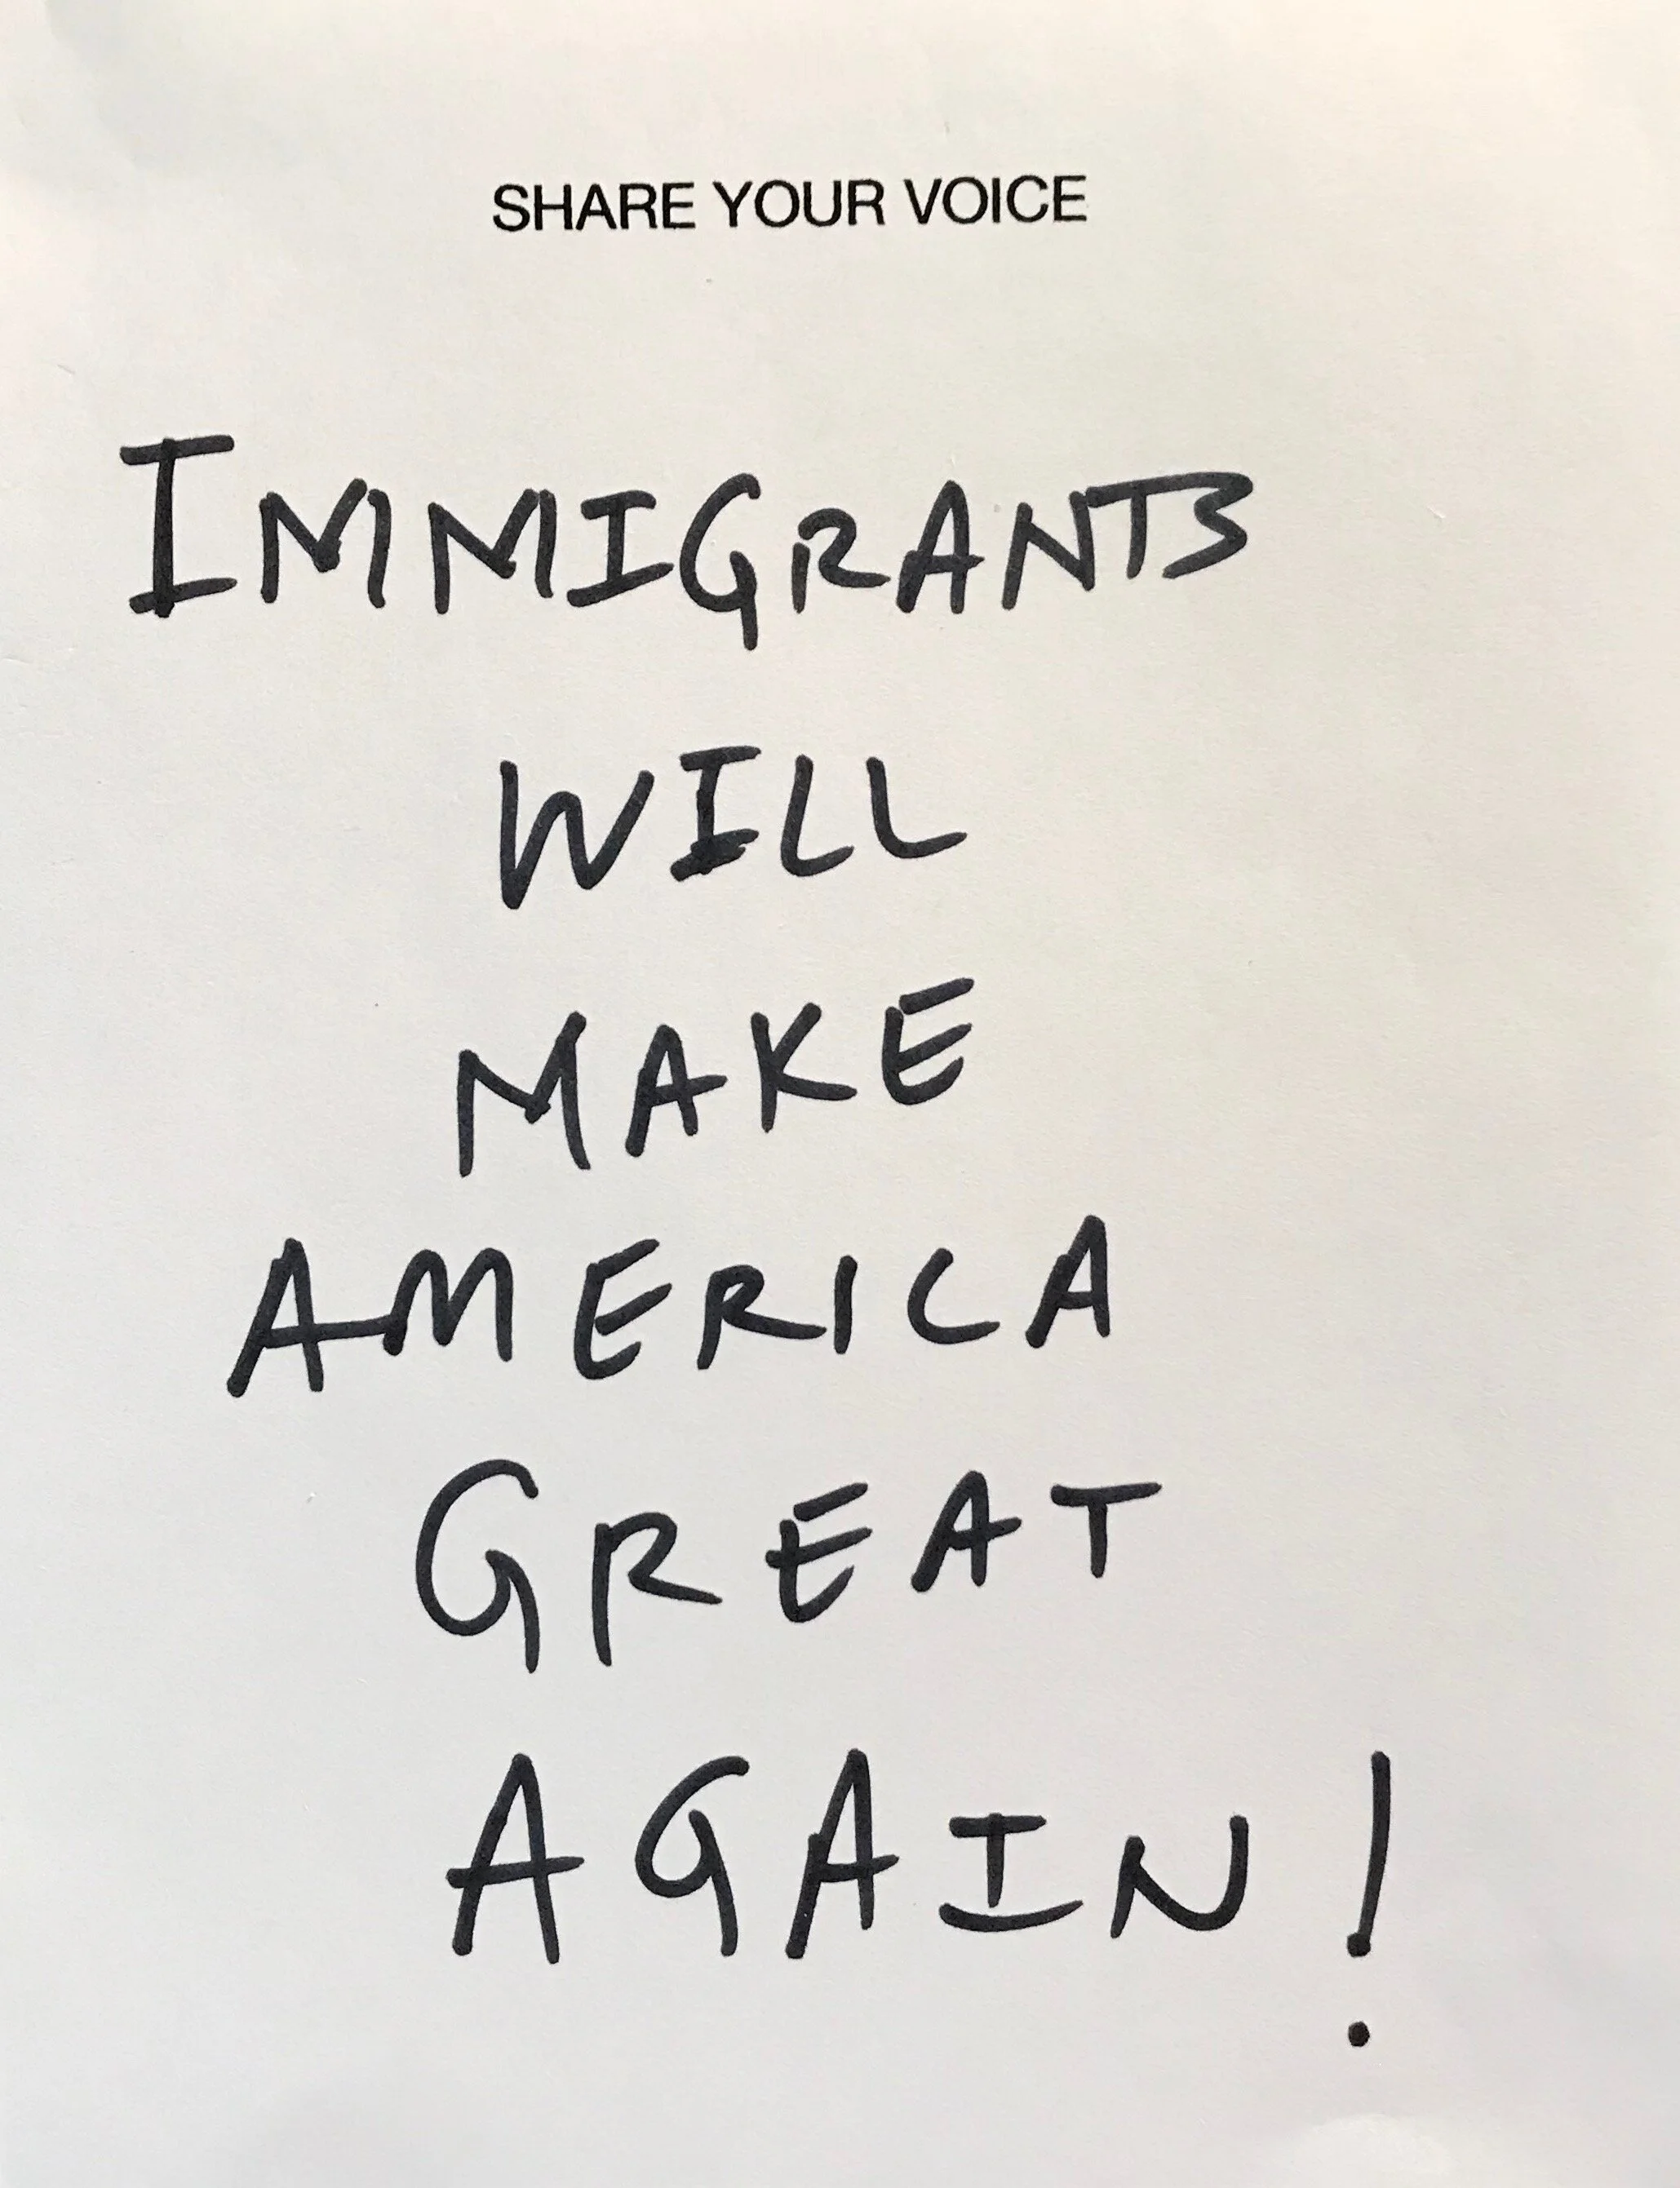 SHARE YOUR VOICE
IMMIGRANTS
WILL
MAKE
AMERICA
GREAT
AGAIN!